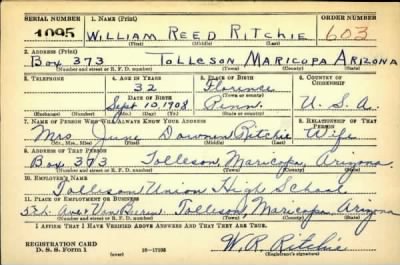 SERIAL NUMBER 1. NAME (Print) ORDER NUMBER
1095 WILLIAM REED RITCHIE 603
(First) (Middle) (Last)
2. ADDRESS (Print)
Box 373 TOLLESON MARICOPA ARIZONA
(Number and street or R. F. D. number) (Town) (County) (State)
3. TELEPHONE 4. AGE IN YEARS 5. PLACE OF BIRTH 6. COUNTRY OF CITIZENSHIP
32 Florence
DATE OF BIRTH (Town or county)
Sept 10, 1908 Penn. U. S. A.
(Exchange) (Number) (Mo.) (Day) (Yr.) (State or country)
7. NAME OF PERSON WHO WILL ALWAYS KNOW YOUR ADDRESS 8. RELATIONSHIP OF THAT PERSON
Mrs June Ritchie Wife
(Mr., Mrs., Miss) (First) (Middle) (Last)
9. ADDRESS OF THAT PERSON
Box 373 Tolleson, Maricopa, Arizona.
(Number and street or R. F. D. number) (Town) (County) (State)
10. EMPLOYER'S NAME
Tolleson Union High School
11. PLACE OF EMPLOYMENT OR BUSINESS
Van Buren. Tolleson, Maricopa, Arizona
(Number and street or R. F. D. number) (Town) (County) (State)
I AFFIRM THAT I HAVE VERIFIED ABOVE ANSWERS AND THAT THEY ARE TRUE.
REGISTRATION CARD
D. S. S. Form 1 (over) W. R. Ritchie
(Registrant's signature)